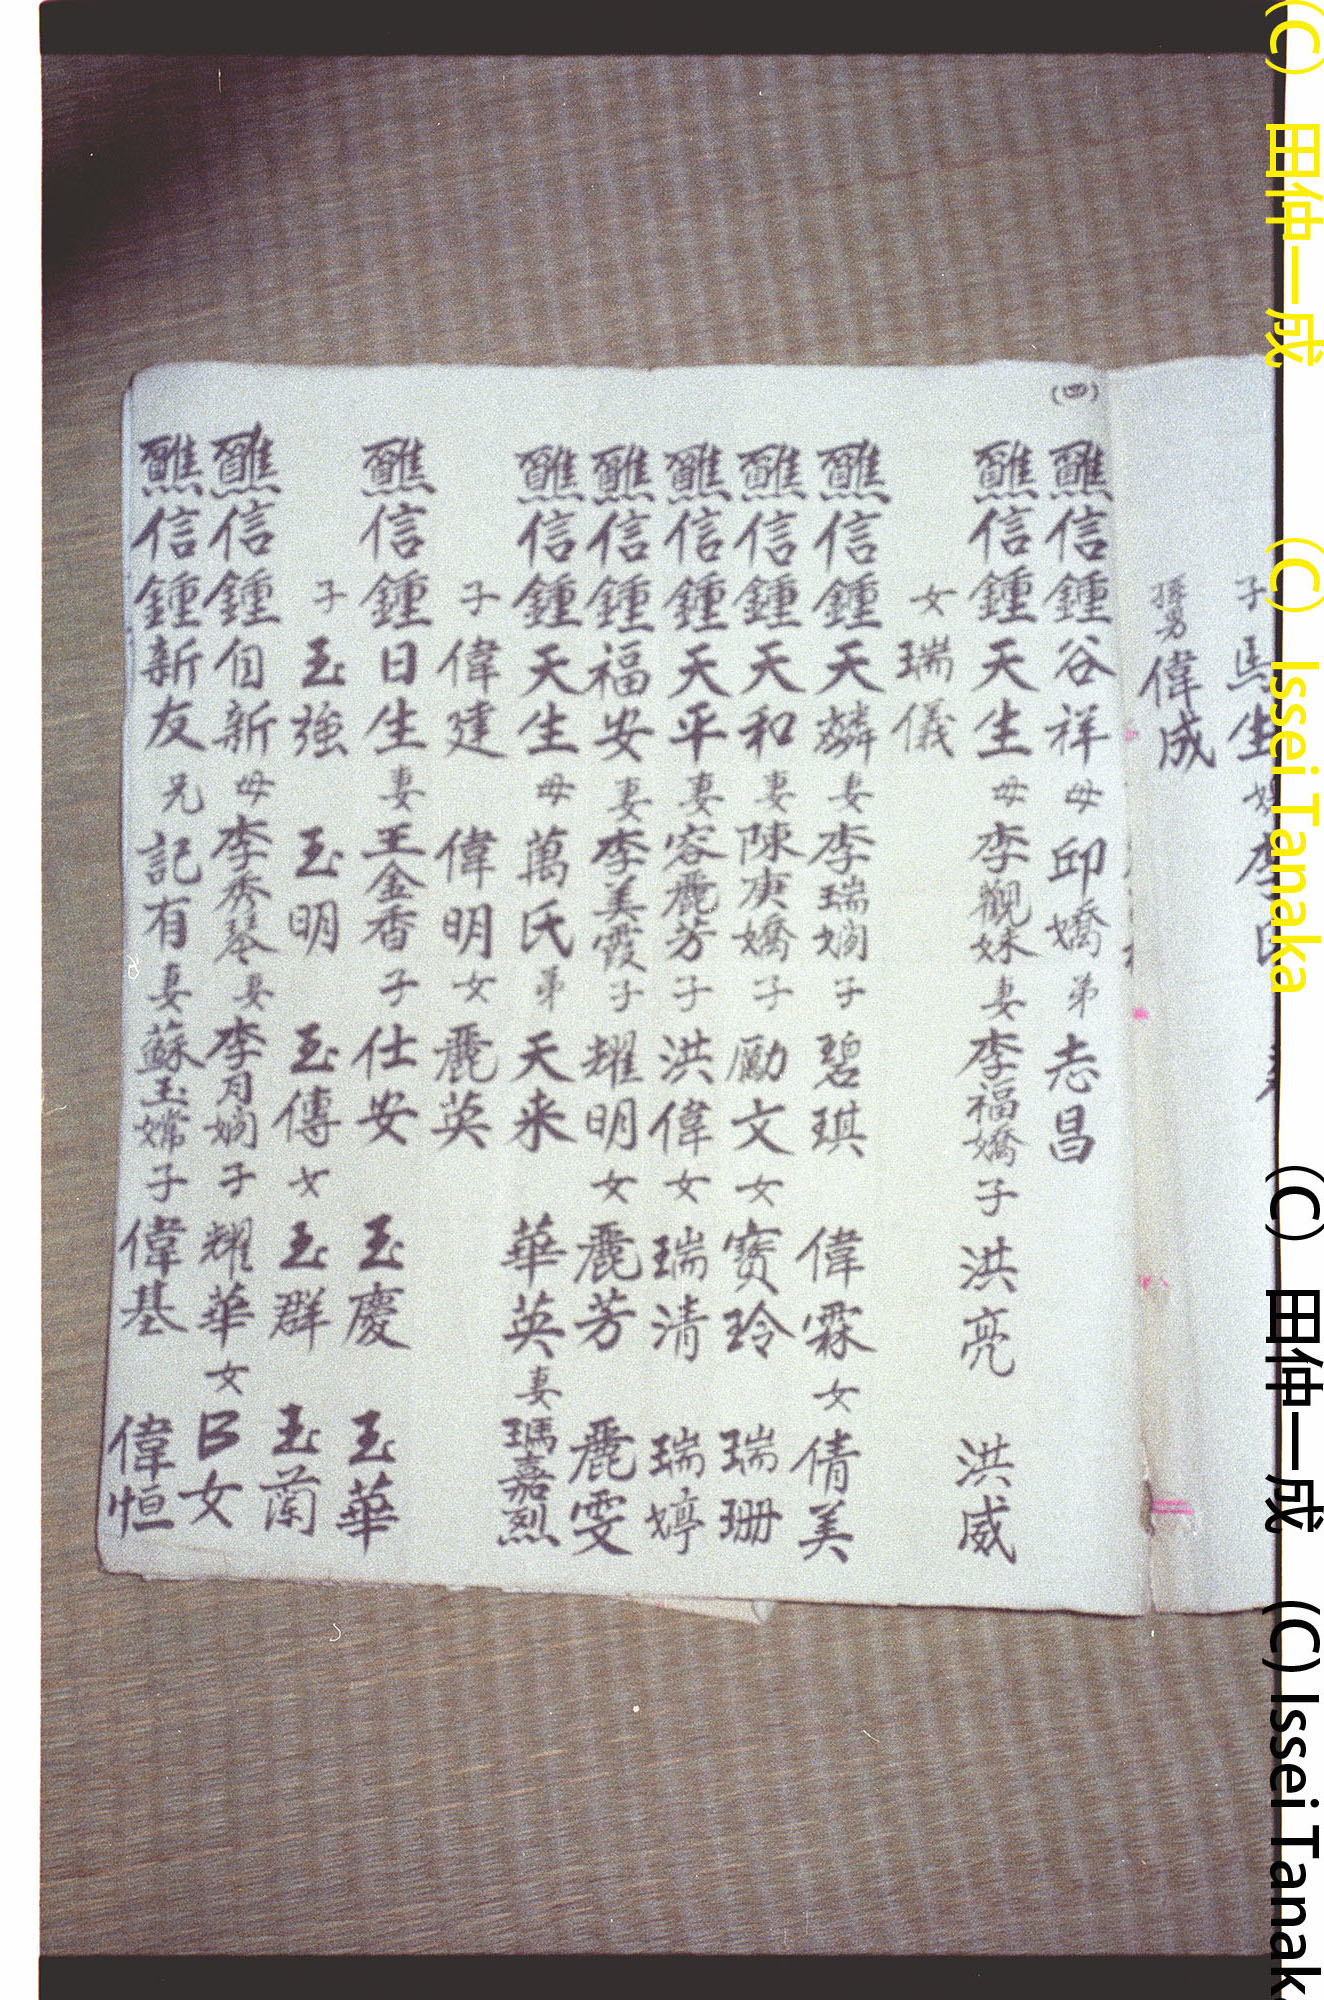 子 馬生
孫男 偉成
(四)
醮信鍾谷祥 母 邱嬌 弟 志昌
醮信鍾天生 母 李觀妹 妻 李福嬌 子 洪亮 洪威
女 瑞儀
醮信鍾天麟 妻 李瑞嫻 子 碧琪 偉霖 女 倩美
醮信鍾天和 妻 陳庚嬌 子 勵文 女 寶玲 瑞珊
醮信鍾天平 妻 容麗芳 子 洪偉 女 瑞清 瑞婷
醮信鍾福安 妻 李美霞 子 耀明 女 麗芳 麗雯
醮信鍾天生 母 萬氏 弟 天来 華英 妻 瑪嘉烈
子 偉建 偉明 女 麗英
醮信鍾日生 妻 王金香 子 仕安 玉慶 玉華
子 玉強 玉明 玉傳 女 玉群 玉蘭
醮信鍾自新 母 李秀琴 妻 李月嫻 子 耀華 女 B女
醮信鍾新友 兄 記有 妻 蘇玉嫦 子 偉基 偉恒
(C) 田仲一成 (C) Issei Tanaka
(C) 田仲一成 (C) Issei Tanak